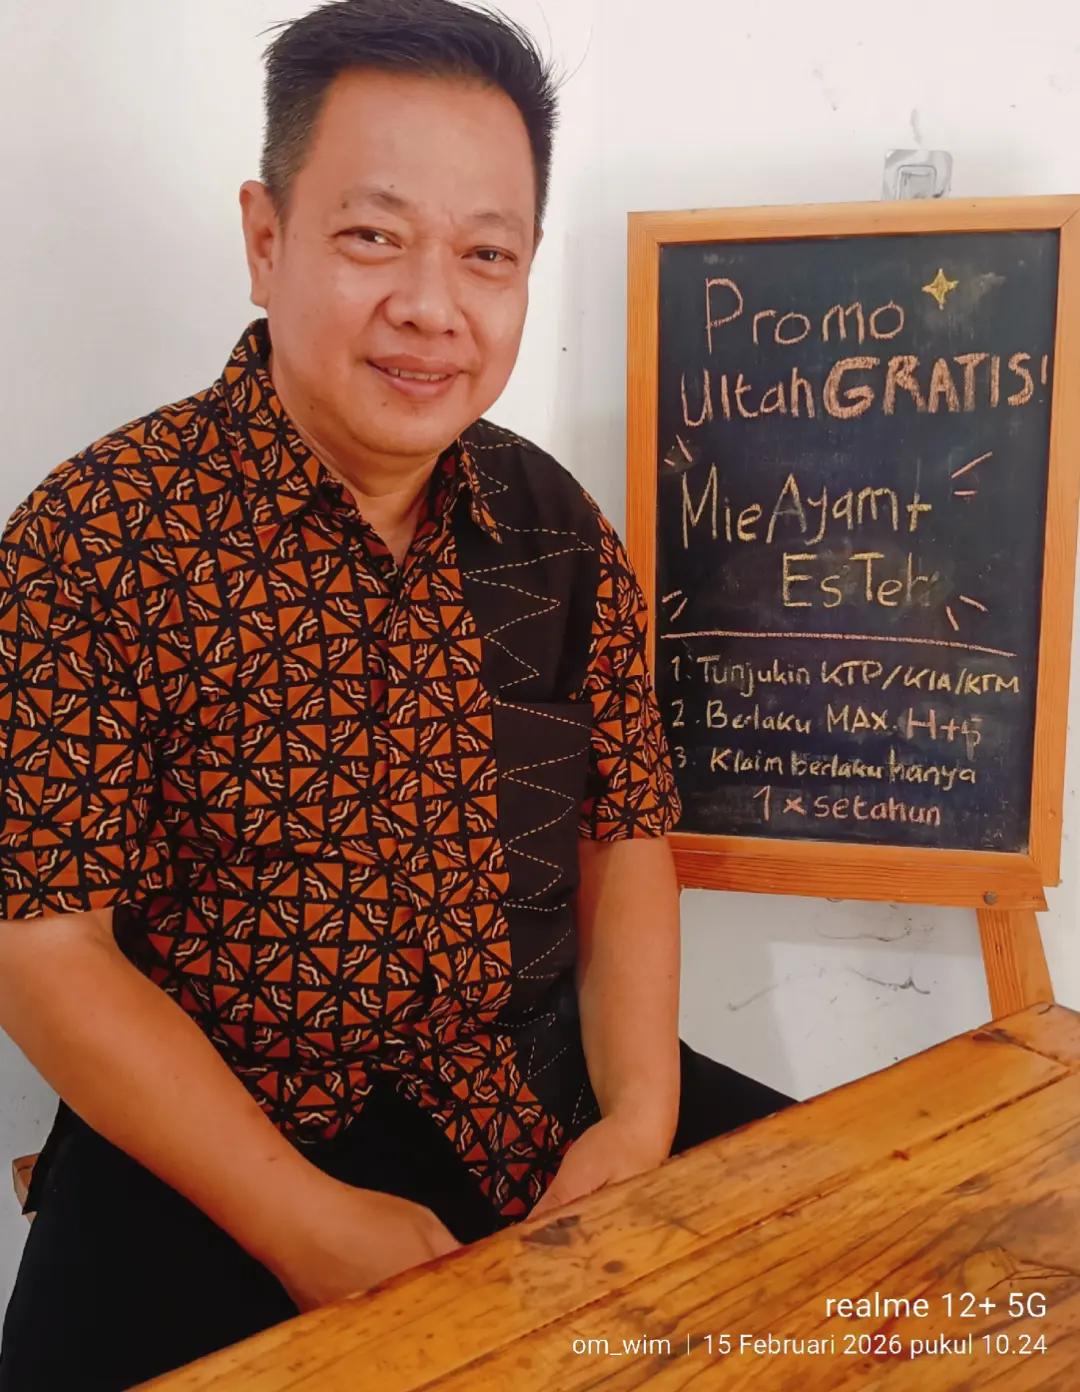 Promo
Ultah GRATIS!
Mie Ayam +
Es Teh
1. Tunjukin KTP/KIA/KTM
2. Berlaku MAX. H+5
3. Klaim berlaku hanya
1 x setahun
realme 12+ 5G
om_wim | 15 Februari 2026 pukul 10.24